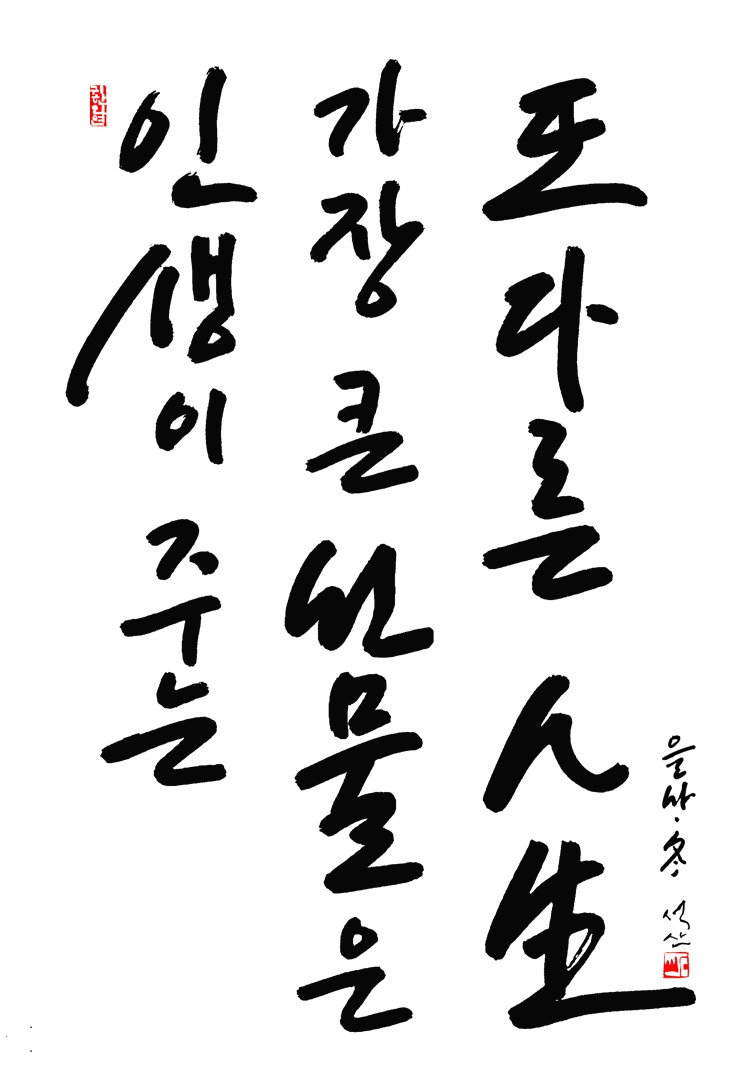 인생이 주는
가장 큰 선물은
또 다른 人生
을사·冬 석산